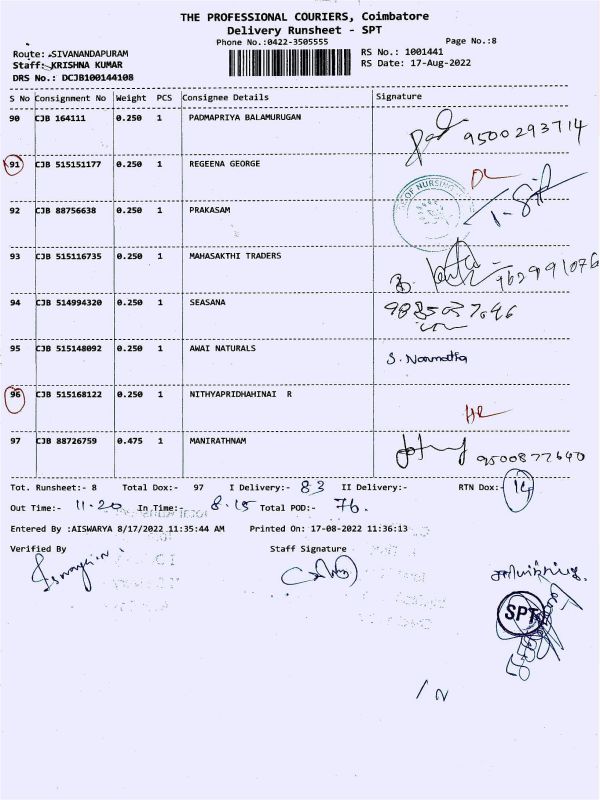 THE PROFESSIONAL COURIERS, Coimbatore
Delivery Runsheet - SPT
Phone No.:0422-3505555 Page No.:8
Route: SIVANANDAPURAM RS No.: 1001441
Staff: KRISHNA KUMAR RS Date: 17-Aug-2022
DRS No.: DCJB100144108
S No Consignment No Weight PCS Consignee Details Signature
90 CJB 164111 0.250 1 PADMAPRIYA BALAMURUGAN
9500293714
91 CJB 515151177 0.250 1 REGEENA GEORGE
DL
OF NURSING
92 CJB 88756638 0.250 1 PRAKASAM
93 CJB 515116735 0.250 1 MAHASAKTHI TRADERS
94 CJB 514994320 0.250 1 SEASANA
95 CJB 515148092 0.250 1 AWAI NATURALS
S. Narmatha
96 CJB 515168122 0.250 1 NITHYAPRIDHAHINAI R
97 CJB 88726759 0.475 1 MANIRATHNAM
9500877640
Tot. Runsheet:- 8 Total Dox:- 97 I Delivery:- 83 II Delivery:- RTN Dox:- 14
Out Time:- 11.20 In Time:- 8.15 Total POD:- 76.
Entered By :AISWARYA 8/17/2022 11:35:44 AM Printed On: 17-08-2022 11:36:13
Verified By Staff Signature
SPT